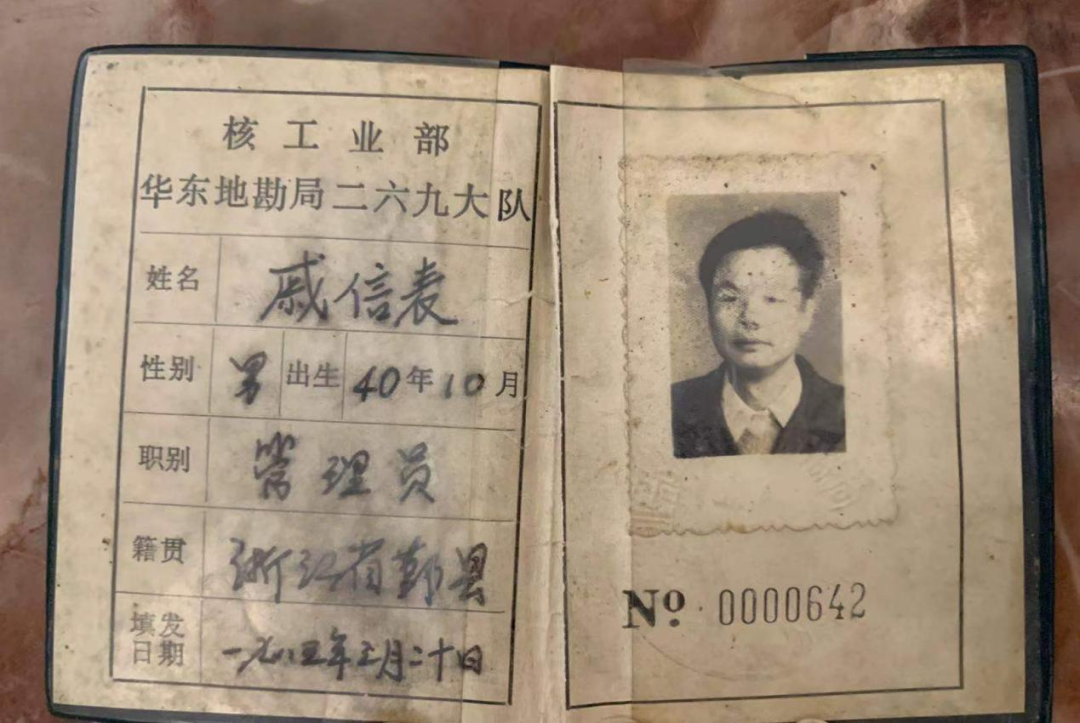 核工业部
华东地勘局二六九大队
姓名 戚信表
性别 男 出生 40年10月
职别 管理员
籍贯 浙江省鄞县
填发日期 一九八五年三月二十日
№ 0000642